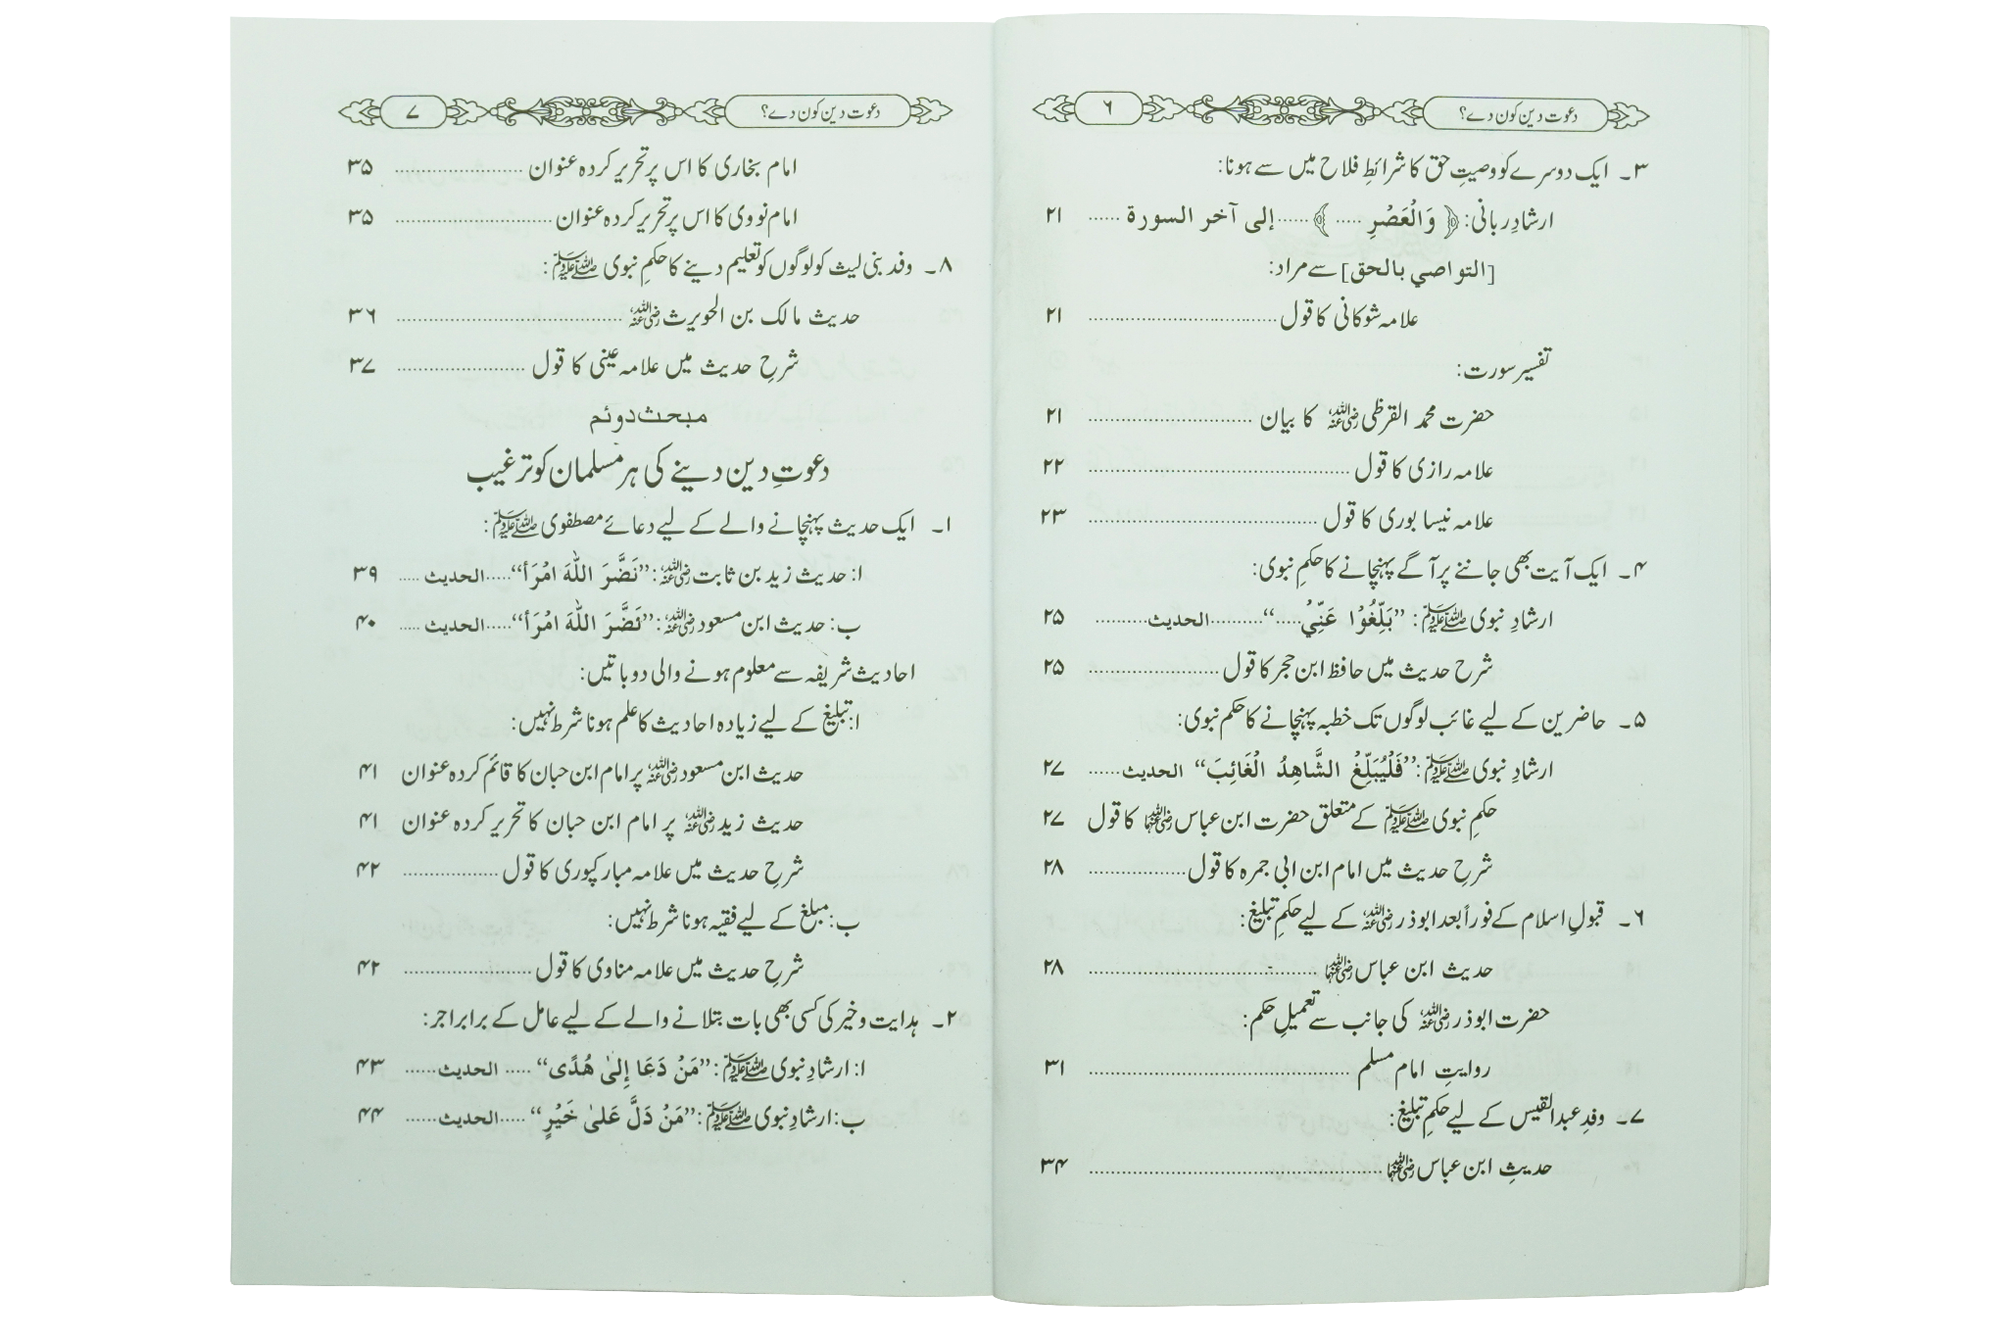 دعوت دین کون دے؟ ۶
۳۔ ایک دوسرے کو وصیتِ حق کا شرائطِ فلاح میں سے ہونا:
ارشادِ ربانی: ﴿ وَالْعَصْرِ ..... ﴾ ...... إلى آخر السورة ...... ۲۱
[التواصي بالحق] سے مراد:
علامہ شوکانی کا قول ...... ۲۱
تفسیر سورت:
حضرت محمد القرظی رضی اللہ عنہ کا بیان ...... ۲۱
علامہ رازی کا قول ...... ۲۲
علامہ نیسا بوری کا قول ...... ۲۳
۴۔ ایک آیت بھی جاننے پر آگے پہنچانے کا حکمِ نبوی:
ارشادِ نبوی ﷺ: ”بَلِّغُوْا عَنِّيْ.....“ ..........الحديث.......... ۲۵
شرح حدیث میں حافظ ابن حجر کا قول ...... ۲۵
۵۔ حاضرین کے لیے غائب لوگوں تک خطبہ پہنچانے کا حکم نبوی:
ارشادِ نبوی ﷺ: ”فَلْيُبَلِّغْ الشَّاهِدُ الْغَائِبَ“ الحديث...... ۲۷
حکمِ نبوی ﷺ کے متعلق حضرت ابن عباس رضی اللہ عنہما کا قول ۲۷
شرحِ حدیث میں امام ابن ابی جمرہ کا قول ...... ۲۸
۶۔ قبولِ اسلام کے فوراً بعد ابوذر رضی اللہ عنہ کے لیے حکمِ تبلیغ:
حدیث ابن عباس رضی اللہ عنہما ...... ۲۸
حضرت ابوذر رضی اللہ عنہ کی جانب سے تعمیلِ حکم:
روایتِ امام مسلم ...... ۳۱
۷۔ وفدِ عبدالقیس کے لیے حکمِ تبلیغ:
حدیثِ ابن عباس رضی اللہ عنہما ...... ۳۴
دعوت دین کون دے؟ ۷
امام بخاری کا اس پر تحریر کردہ عنوان ...... ۳۵
امام نووی کا اس پر تحریر کردہ عنوان ...... ۳۵
۸۔ وفد بنی لیث کو لوگوں کو تعلیم دینے کا حکمِ نبوی ﷺ:
حدیث مالک بن الحویرث رضی اللہ عنہ ...... ۳۶
شرحِ حدیث میں علامہ عینی کا قول ...... ۳۷
مبحث دوئم
دعوتِ دین دینے کی ہر مسلمان کو ترغیب
۱۔ ایک حدیث پہنچانے والے کے لیے دعائے مصطفوی ﷺ:
ا: حدیث زید بن ثابت رضی اللہ عنہ: ”نَضَّرَ اللّٰهَ امْرَأً“.....الحديث ..... ۳۹
ب: حدیث ابن مسعود رضی اللہ عنہ: ”نَضَّرَ اللّٰهَ امْرَأً“.....الحديث ..... ۴۰
احادیث شریفہ سے معلوم ہونے والی دو باتیں:
ا: تبلیغ کے لیے زیادہ احادیث کا علم ہونا شرط نہیں:
حدیث ابن مسعود رضی اللہ عنہ پر امام ابن حبان کا قائم کردہ عنوان ۴۱
حدیث زید رضی اللہ عنہ پر امام ابن حبان کا تحریر کردہ عنوان ۴۱
شرحِ حدیث میں علامہ مبارکپوری کا قول ...... ۴۲
ب: مبلغ کے لیے فقیہ ہونا شرط نہیں:
شرحِ حدیث میں علامہ مناوی کا قول ...... ۴۲
۲۔ ہدایت و خیر کی کسی بھی بات بتلانے والے کے لیے عامل کے برابر اجر:
ا: ارشادِ نبوی ﷺ: ”مَنْ دَعَا إِلىٰ هُدًى“ ..... الحديث...... ۴۳
ب: ارشادِ نبوی ﷺ: ”مَنْ دَلَّ عَلىٰ خَيْرٍ“ .....الحديث...... ۴۴